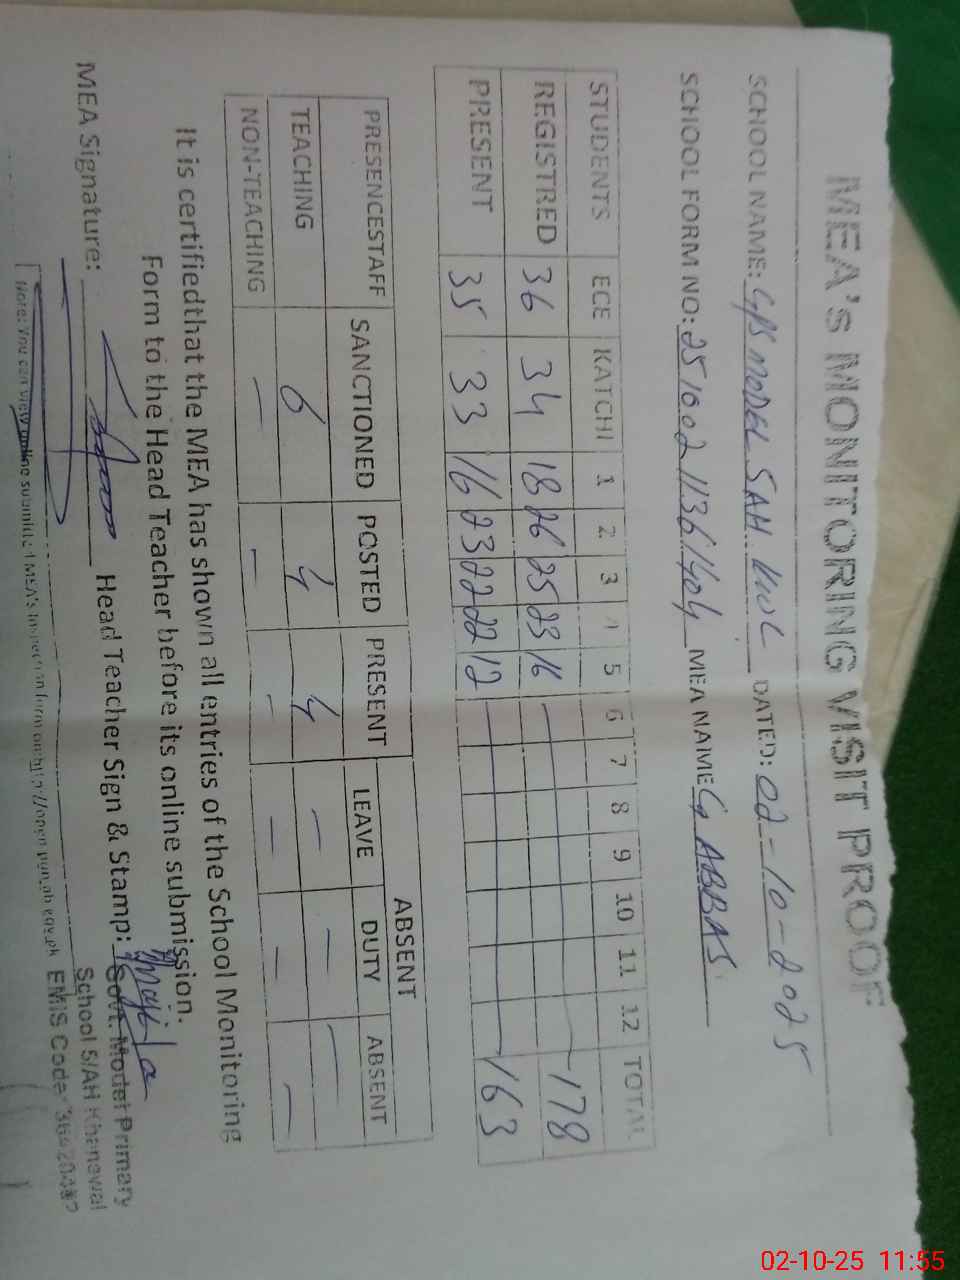 MEA's MONITORING VISIT PROOF
SCHOOL NAME: GPS MODEL 5AH KWL DATED: 02-10-2025
SCHOOL FORM NO: MEA NAME G ABBAS
STUDENTS ECE KATCHI 1 2 3 4 5 6 7 8 9 10 11 12 TOTAL
REGISTRED 36 34 18 26 25 23 16 178
PRESENT 35 33 16 23 22 22 12 163
ABSENT
PRESENCESTAFF SANCTIONED POSTED PRESENT LEAVE DUTY ABSENT
TEACHING 6 4 4 — — —
NON-TEACHING — — — — — —
It is certifiedthat the MEA has shown all entries of the School Monitoring
Form to the Head Teacher before its online submission.
MEA Signature: Head Teacher Sign & Stamp:
Govt. Model Primary
School 5/AH Khanewal
EMIS Code:
Note: You can view online submitted MEA's Inspection form on http://open.punjab.gov.pk
02-10-25 11:55